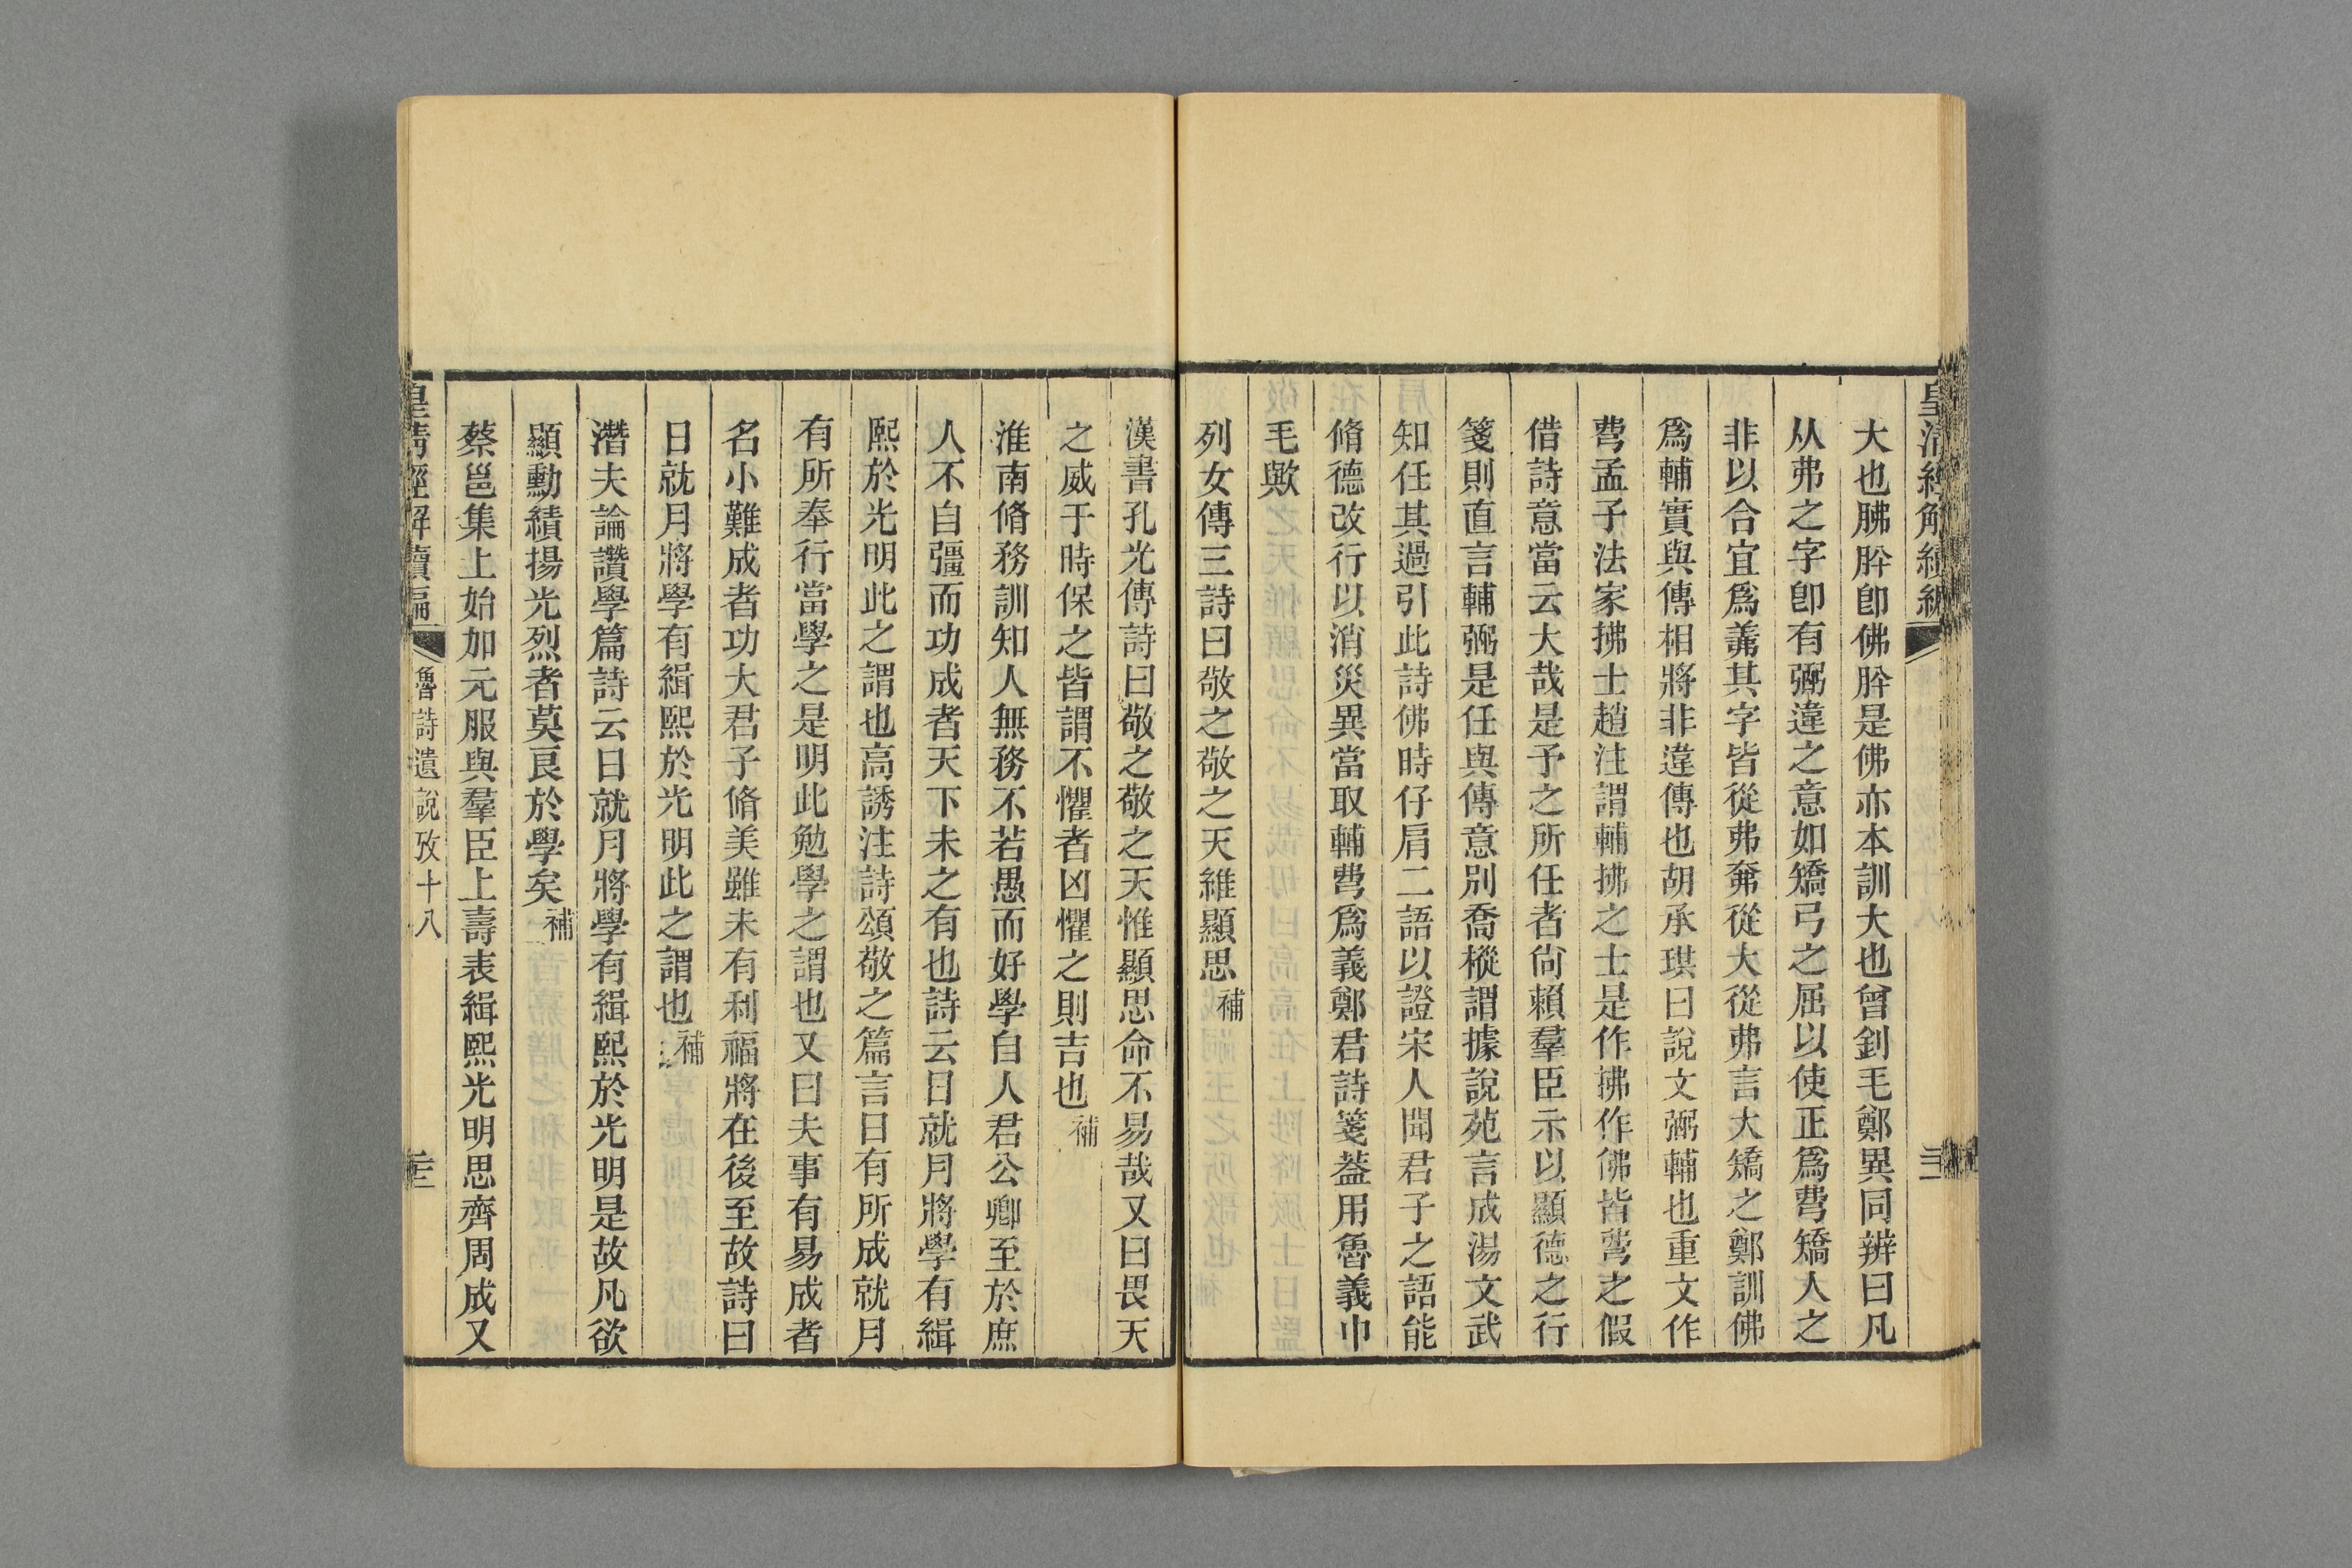 皇清經解續編
大也胇肸卽佛肸是佛亦本訓大也曾釗毛鄭異同辨曰凡
从弗之字卽有弼違之意如矯弓之屈以使正爲𢍍矯人之
非以合宜爲𢍍其字皆從弗奔從大從弗言大矯之鄭訓佛
爲輔實與傳相將非違傳也胡承珙曰說文弼輔也重文作
𢍍孟子法家拂士趙注謂輔拂之士是作拂作佛皆𢍍之假
借詩意當云大哉是予之所任者尙賴羣臣示以顯德之行
箋則直言輔弼是任與傳意別喬樅謂據說苑言成湯文武
知任其過引此詩佛時仔肩二語以證宋人聞君子之語能
脩德改行以消災異當取輔𢍍爲義鄭君詩箋葢用魯義巾
毛歟
列女傳三詩曰敬之敬之天維顯思補
漢書孔光傳詩曰敬之敬之天惟顯思命不易哉又曰畏天
之威于時保之皆謂不懼者凶懼之則吉也補
淮南脩務訓知人無務不若愚而好學自人君公卿至於庶
人不自彊而功成者天下未之有也詩云日就月將學有緝
熙於光明此之謂也高誘注詩頌敬之篇言日有所成就月
有所奉行當學之是明此勉學之謂也又曰夫事有易成者
名小難成者功大君子脩美雖未有利福將在後至故詩曰
日就月將學有緝熙於光明此之謂也補
潛夫論讚學篇詩云日就月將學有緝熙於光明是故凡欲
顯勳績揚光烈者莫良於學矣補
蔡邕集上始加元服與羣臣上壽表緝熙光明思齊周成又
皇清經解續編
魯詩遺說攷十八